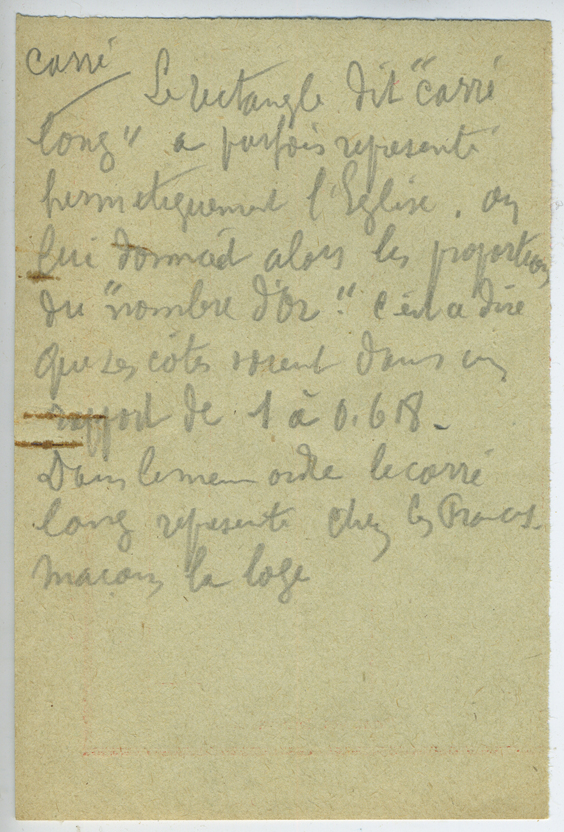 carré
Le rectangle dit "carré
long" a parfois represente
hermetiquement l'Eglise. on
lui donnait alors les proportions
du "nombre d'Or". c'est a dire
que ses côtes soient dans un
rapport de 1 à 0.618.
Dans le meme ordre le carré
long represente chez les Francs
macons la loge